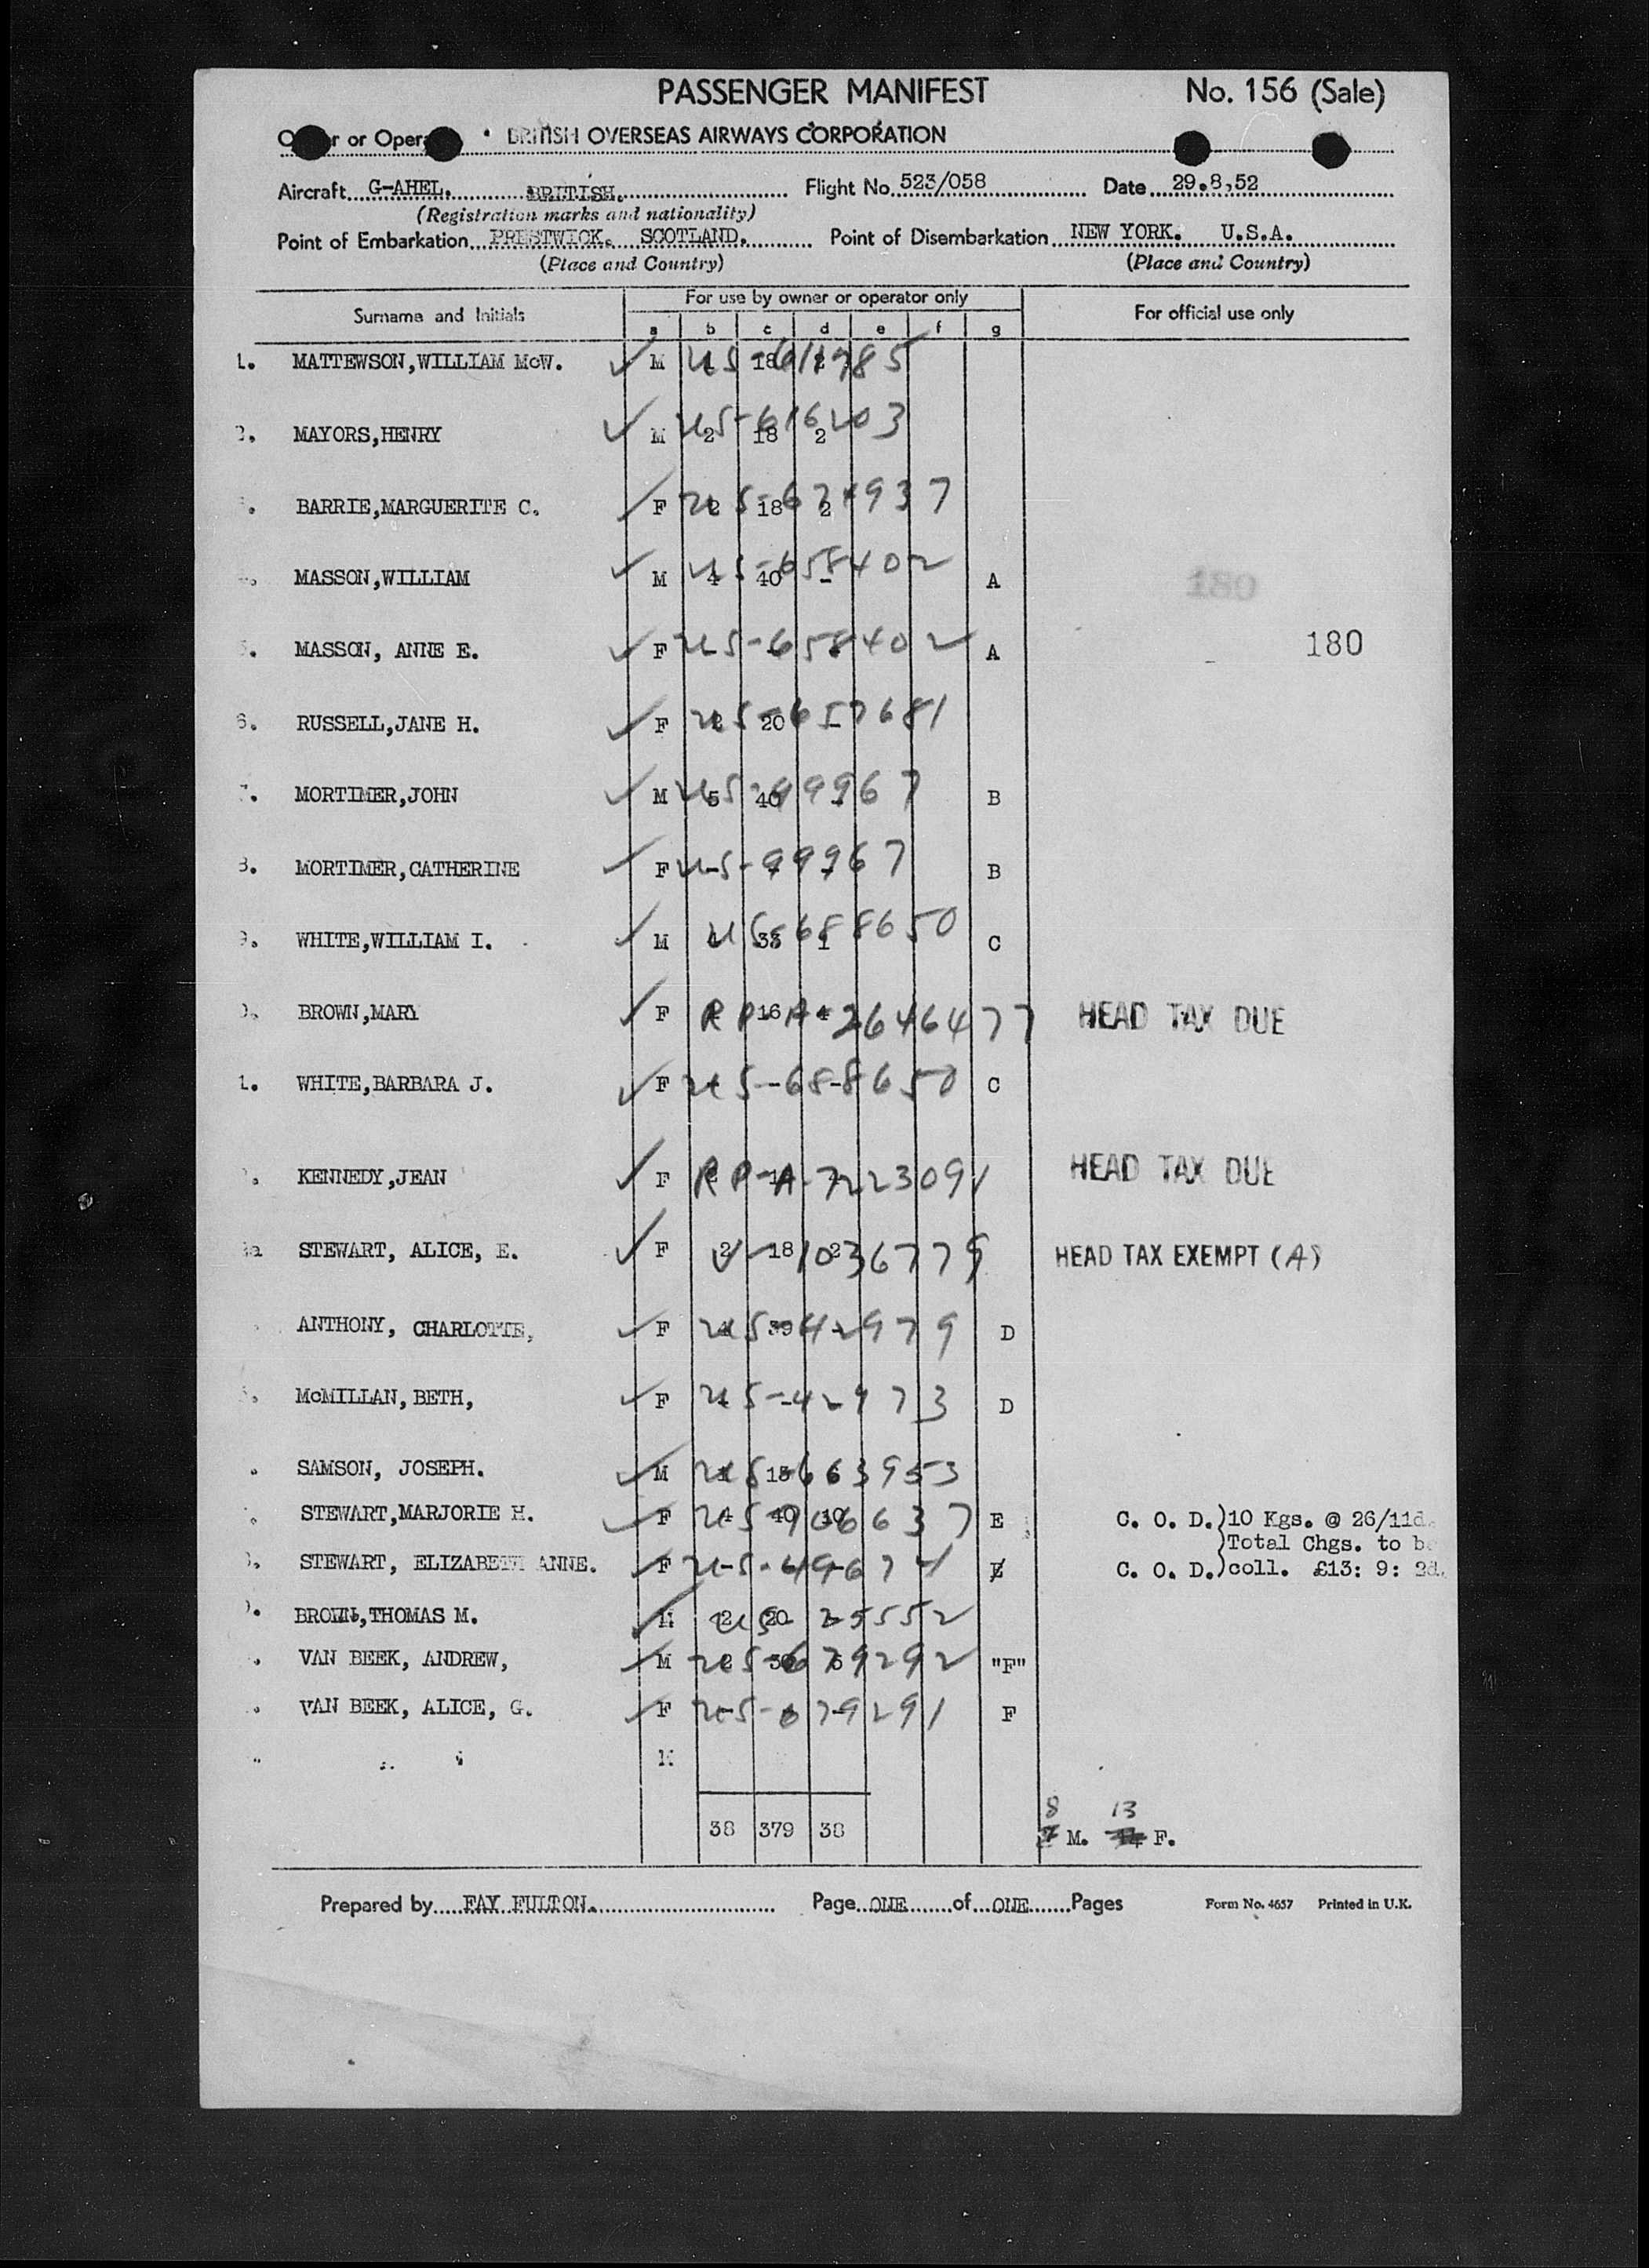 PASSENGER MANIFEST No. 156 (Sale)
or BRITISH OVERSEAS AIRWAYS CORPORATION
Aircraft G-AHEL. BRITISH. Flight No. 523/058 Date 29.8.52
(Registration marks and nationality)
Point of Embarkation PRESTWICK. SCOTLAND. Point of Disembarkation NEW YORK. U.S.A.
(Place and Country) (Place and Country)
For use by owner or operator only
Surname and Initials For official use only
a b c d e f g
1. MATTEWSON,WILLIAM McW. M 18 2
MAYORS,HENRY M 2 18 2 US-616203
BARRIE,MARGUERITE C. F 2 18 2
MASSON,WILLIAM M 4 40 - US-658402 A 180
MASSON, ANNE E. F US-658402 A 180
6. RUSSELL,JANE H. F 2 20 - US-657681
MORTIMER,JOHN M 5 40 US-99967 B
MORTIMER,CATHERINE F US-99967 B
WHITE,WILLIAM I. M 4 38 1 US-688650 C
BROWN,MARY F 16 4 RP-A-2646477 HEAD TAX DUE
1. WHITE,BARBARA J. F US-688650 C
KENNEDY,JEAN F RP-A-7223091 HEAD TAX DUE
STEWART, ALICE, E. F 2 18 2 V-1036779 HEAD TAX EXEMPT (A)
ANTHONY, CHARLOTTE, F 39 US-42979 D
McMILLAN, BETH, F US-42973 D
SAMSON, JOSEPH. M 6 US-663953
STEWART,MARJORIE H. F 4 40 10 E C. O. D.)10 Kgs. @ 26/11d.
)Total Chgs. to
STEWART, ELIZABETH ANNE. F US-49674 E C. O. D.)coll. £13: 9: 2d.
BROWN,THOMAS M. M 2 20 US 25552
VAN BEEK, ANDREW, M US-679292 "F"
VAN BEEK, ALICE, G. F US-679291 F
M
8 13
38 379 38 7 M. 14 F.
Prepared by FAY FULTON. Page ONE of ONE Pages Form No. 4657 Printed in U.K.